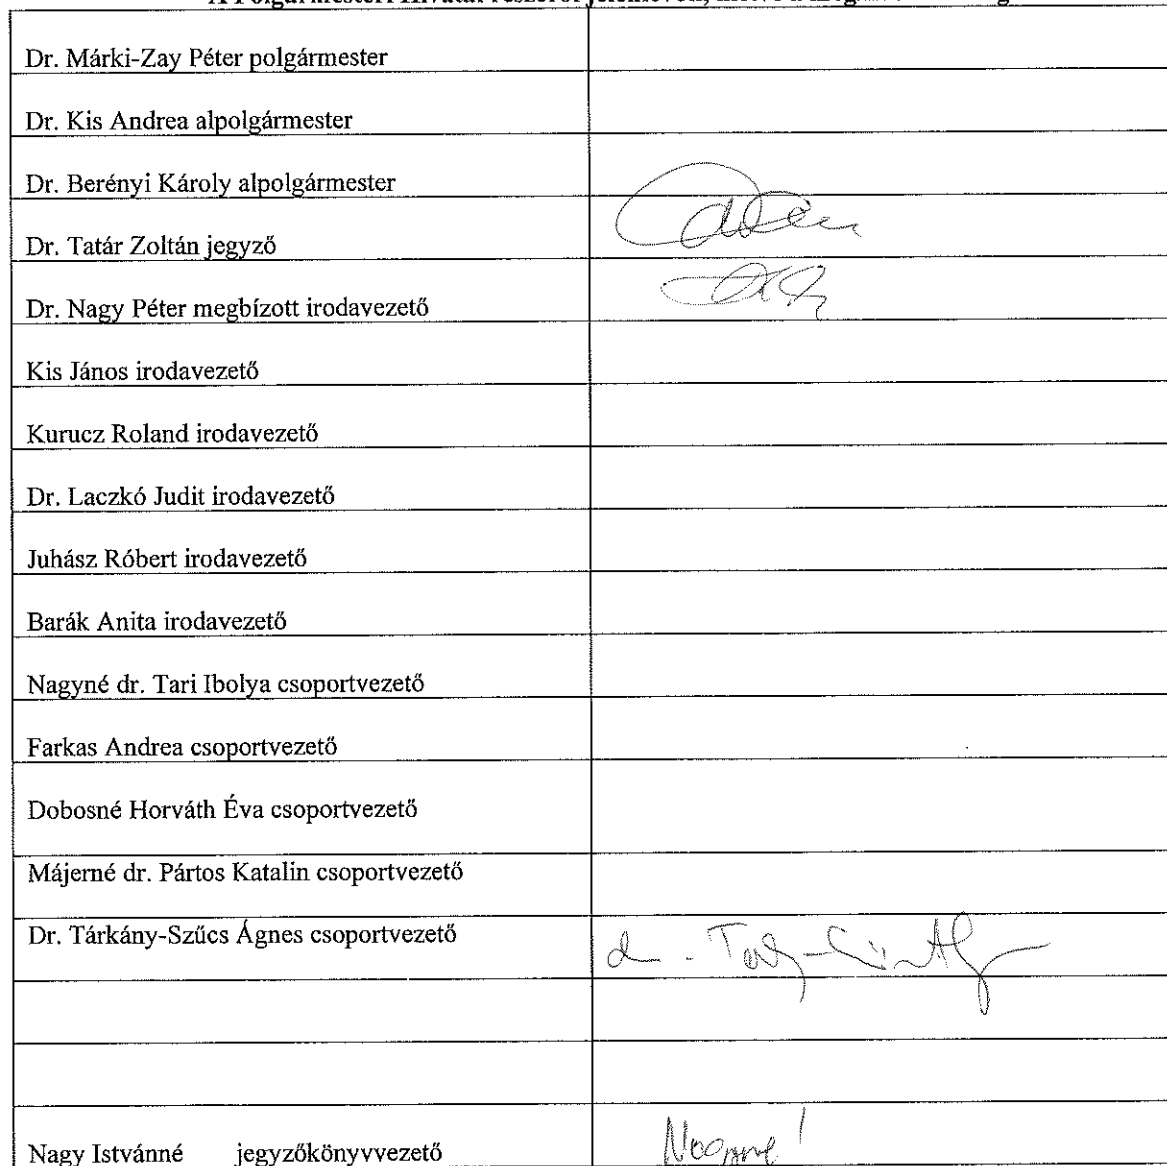 A Polgármesteri Hivatal részéről jelenlévők,
Dr. Márki-Zay Péter polgármester
Dr. Kis Andrea alpolgármester
Dr. Berényi Károly alpolgármester
Dr. Tatár Zoltán jegyző
Dr. Nagy Péter megbízott irodavezető
Kis János irodavezető
Kurucz Roland irodavezető
Dr. Laczkó Judit irodavezető
Juhász Róbert irodavezető
Barák Anita irodavezető
Nagyné dr. Tari Ibolya csoportvezető
Farkas Andrea csoportvezető
Dobosné Horváth Éva csoportvezető
Májerné dr. Pártos Katalin csoportvezető
Dr. Tárkány-Szűcs Ágnes csoportvezető
Nagy Istvánné jegyzőkönyvvezető